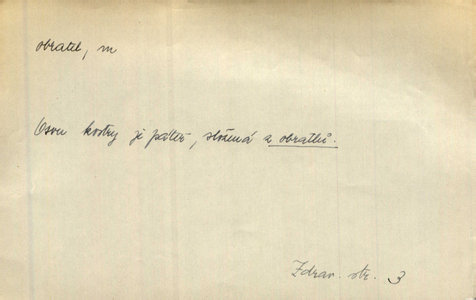 obratel, m
Osou kostry je páteř, složená z obratlů.
Zdrav. str. 3